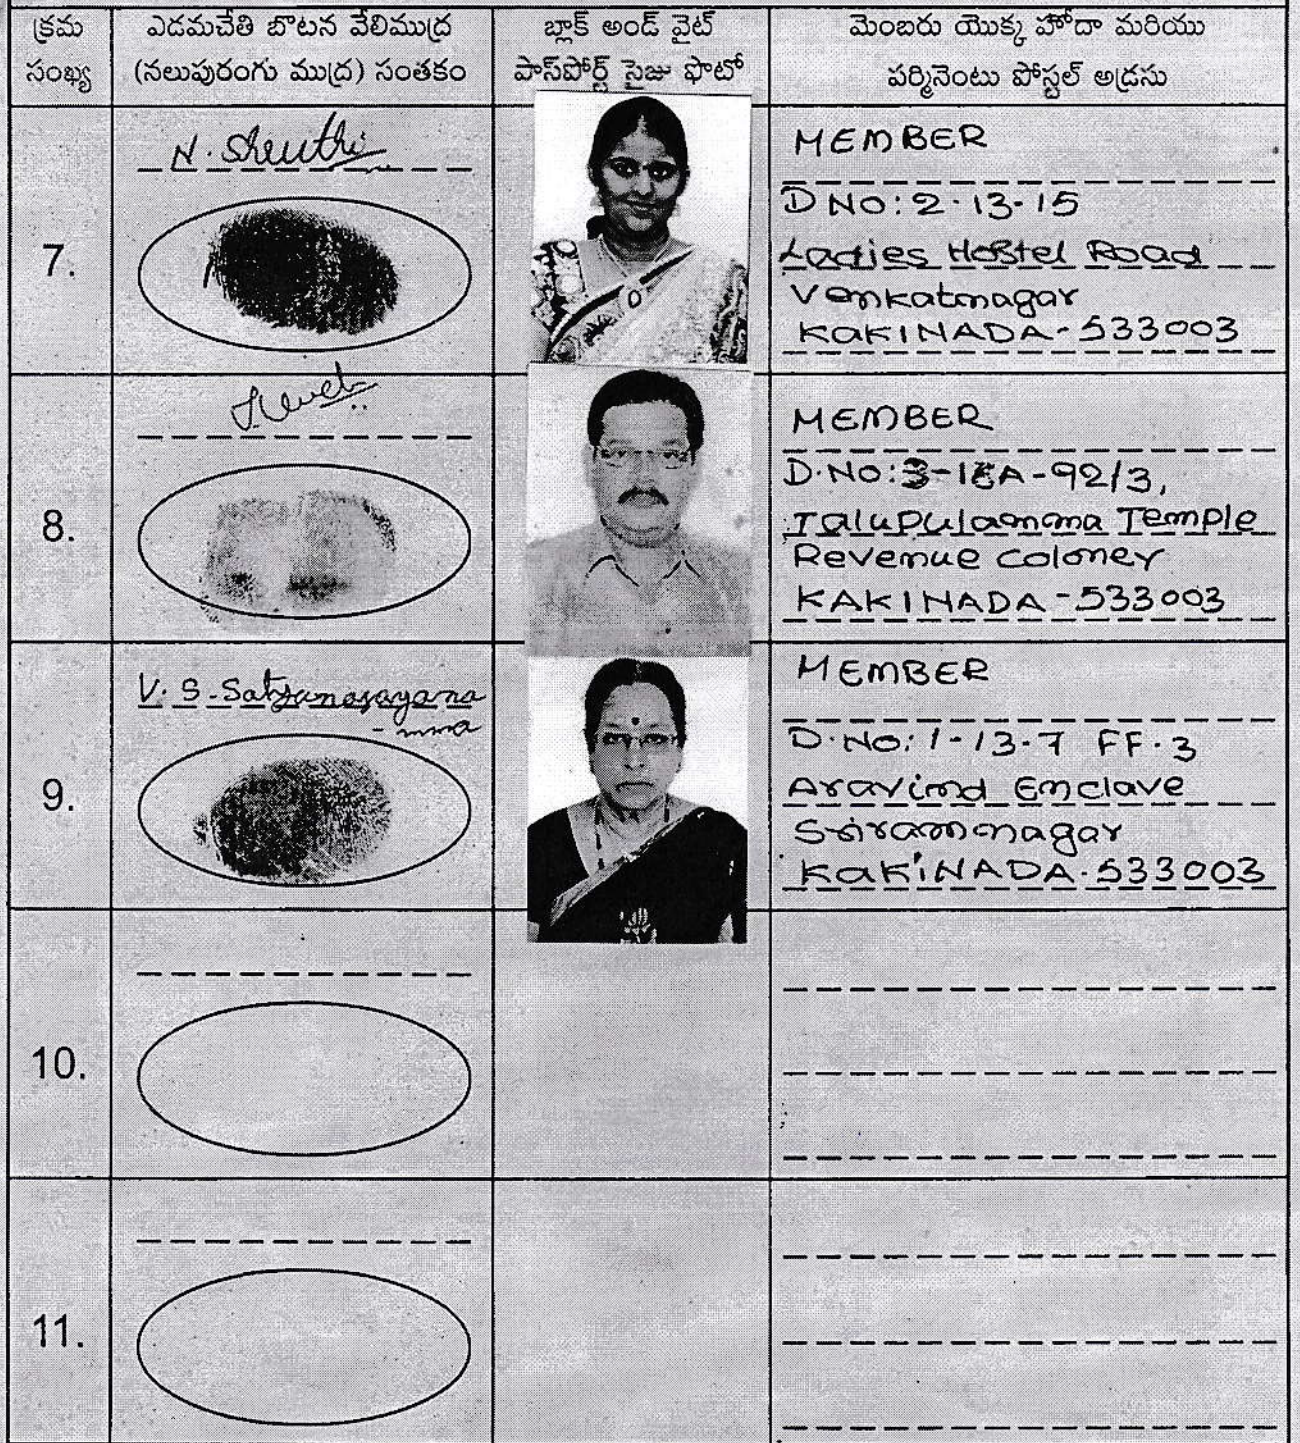 క్రమ
సంఖ్య
ఎడమచేతి బొటన వేలిముద్ర
(నలుపురంగు ముద్ర) సంతకం
బ్లాక్ అండ్ వైట్
పాస్‌పోర్ట్ సైజు ఫొటో
మెంబరు యొక్క హోదా మరియు
పర్మినెంటు పోస్టల్ అడ్రసు
7.
N. Shruthi
MEMBER
D NO: 2-13-15
Ladies Hostel Road
Venkatnagar
KaKINADA-533003
8.
MEMBER
Talupulamma Temple
Revenue Coloney
KAKINADA-533003
9.
V. S. Satyanarayana
- mma
MEMBER
D.NO: 1-13-7 FF.3
Aravind Enclave
Sriramnagar
KaKiNADA-533003
10.
11.